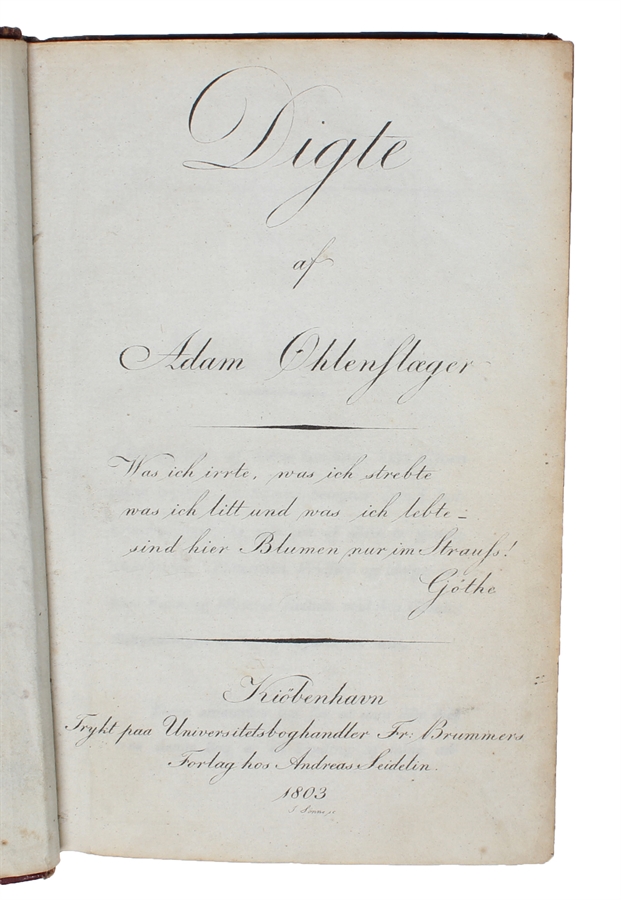 Digte
af
Adam Øhlenslæger
Was ich irrte, was ich strebte
was ich litt und was ich lebte –
sind hier Blumen nur im Strauſs!
Göthe
Kiöbenhavn
Trykt paa Universitetsboghandler Fr: Brummers
Forlag hos Andreas Seidelin.
1803